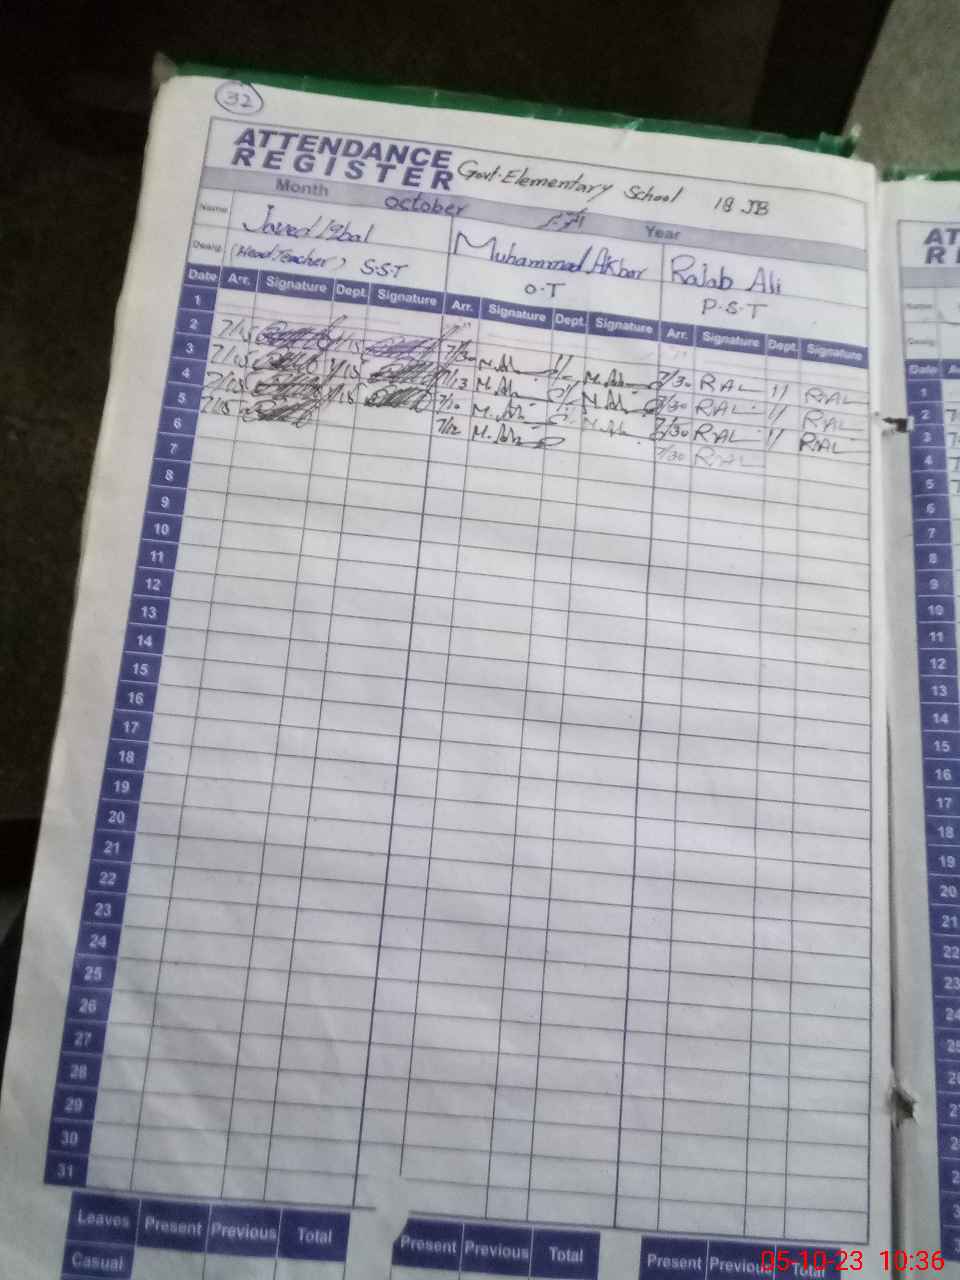 32
ATTENDANCE
REGISTER
Govt. Elementary School 18 JB
Month October Year
Name Javed Iqbal Muhammad Akbar Rajab Ali
Desig. (Head Teacher) S.S.T O.T P.S.T
Date Arr. Signature Dept. Signature Arr. Signature Dept. Signature Arr. Signature Dept. Signature
1
2 7/15 7/30 7/30 RAL 11 RAL
3 7/15 7/13 7/30 RAL 11 RAL
4 7/15 7/10 7/30 RAL 11 RAL
5 7/15 7/12 7/30 RAL
6
7
8
9
10
11
12
13
14
15
16
17
18
19
20
21
22
23
24
25
26
27
28
29
30
31
Leaves Present Previous Total Present Previous Total Present Previous Total
Casual
AT
R
Date
1
2
3
4
5
6
7
8
9
10
11
12
13
14
15
16
17
18
19
20
21
22
23
24
25
26
05-10-23 10:36